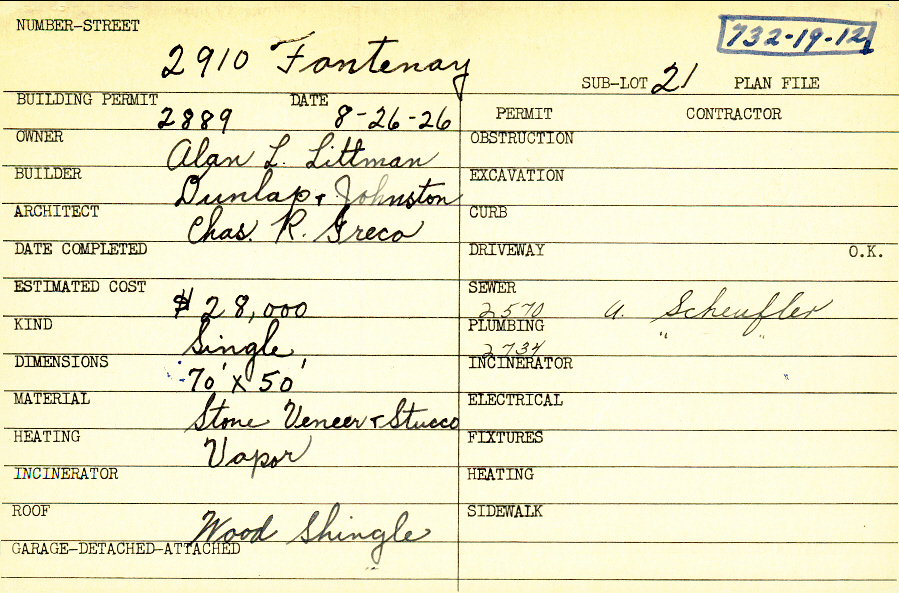 NUMBER-STREET
732-19-12
2910 Fontenay
SUB-LOT 21 PLAN FILE
BUILDING PERMIT 2889 DATE 8-26-26
PERMIT CONTRACTOR
OWNER Alan L. Littman
OBSTRUCTION
BUILDER Dunlap & Johnston
EXCAVATION
ARCHITECT Chas. R. Greco
CURB
DATE COMPLETED
DRIVEWAY O.K.
ESTIMATED COST $28,000
SEWER 2570 A. Scheufler
KIND Single
PLUMBING 2734 " "
DIMENSIONS 70' x 50'
INCINERATOR
MATERIAL Stone Veneer & Stucco
ELECTRICAL
HEATING Vapor
FIXTURES
INCINERATOR
HEATING
ROOF Wood Shingle
SIDEWALK
GARAGE-DETACHED-ATTACHED "